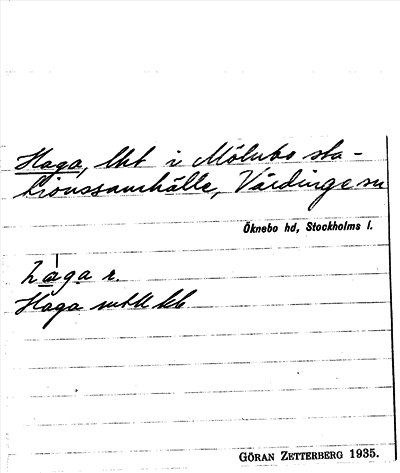 Haga, lht i Mölnbo sta-
tionssamhälle, Vårdinge sn
Öknebo hd, Stockholms l.
haga r.
Haga
GÖRAN ZETTERBERG 1935.